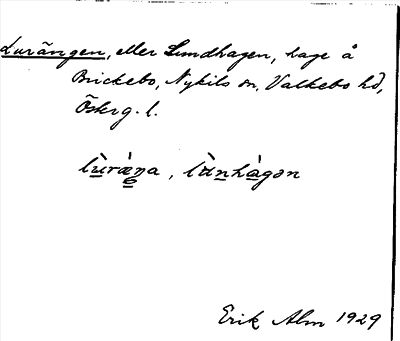 Lurängen, eller Lundhagen, hage å
Brickebo, Nykils sn, Valkebo hd,
Österg. l.
lùræ̀ŋa, lùnhàgən
Erik Alm 1929